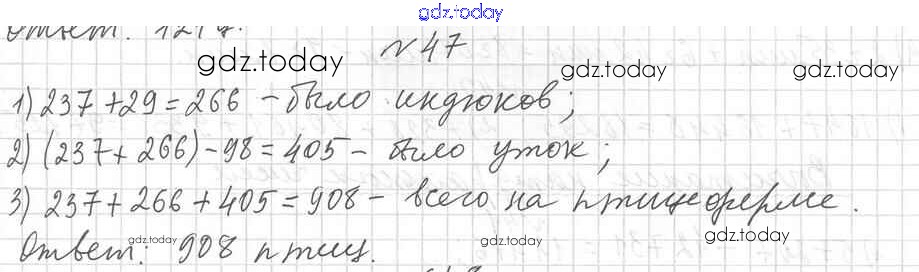 gdz.today
Ответ: 1217.
№47
gdz.today
gdz.today
gdz.today
1) 237+29=266 - было индюков;
2) (237+266)-98=405 - было уток;
3) 237+266+405=908 - всего на птицеферме.
Ответ: 908 птиц.
gdz.today
gdz.today
gdz.today